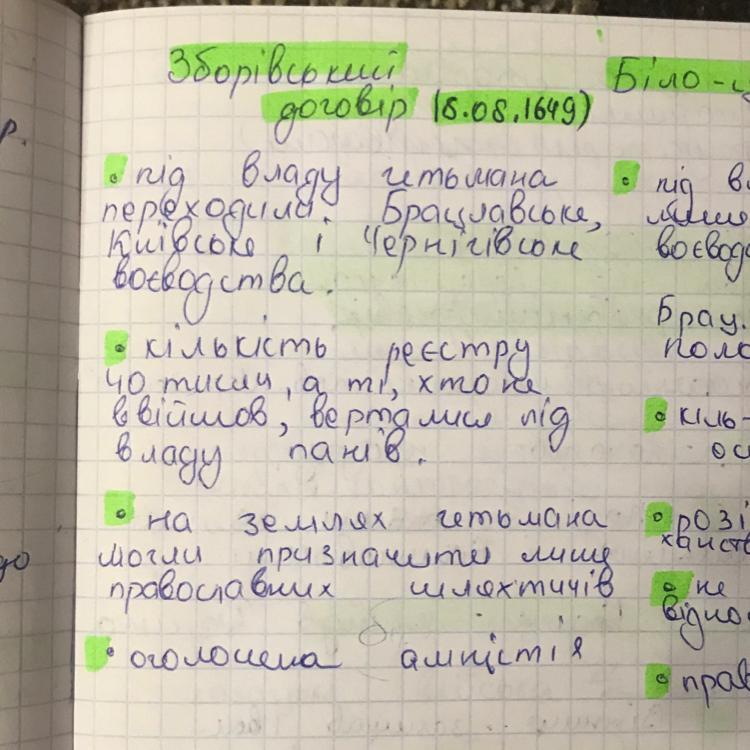 Зборівський
договір (8.08.1649)
• під владу гетьмана
переходила. Брацлавське,
Київське і Чернігівське
воєводства.
• кількість реєстру
40 тисяч, а ті, хто не
ввійшов, вертались під
владу панів.
• на землях гетьмана
могли призначити лише
православних шляхтичів
• оголошена амністія
Біло-ц
• під в
лише
воєвод
Брац.
поло
• кіль-
ос
• розі
ханств
• не
відно
• прав
р.
до